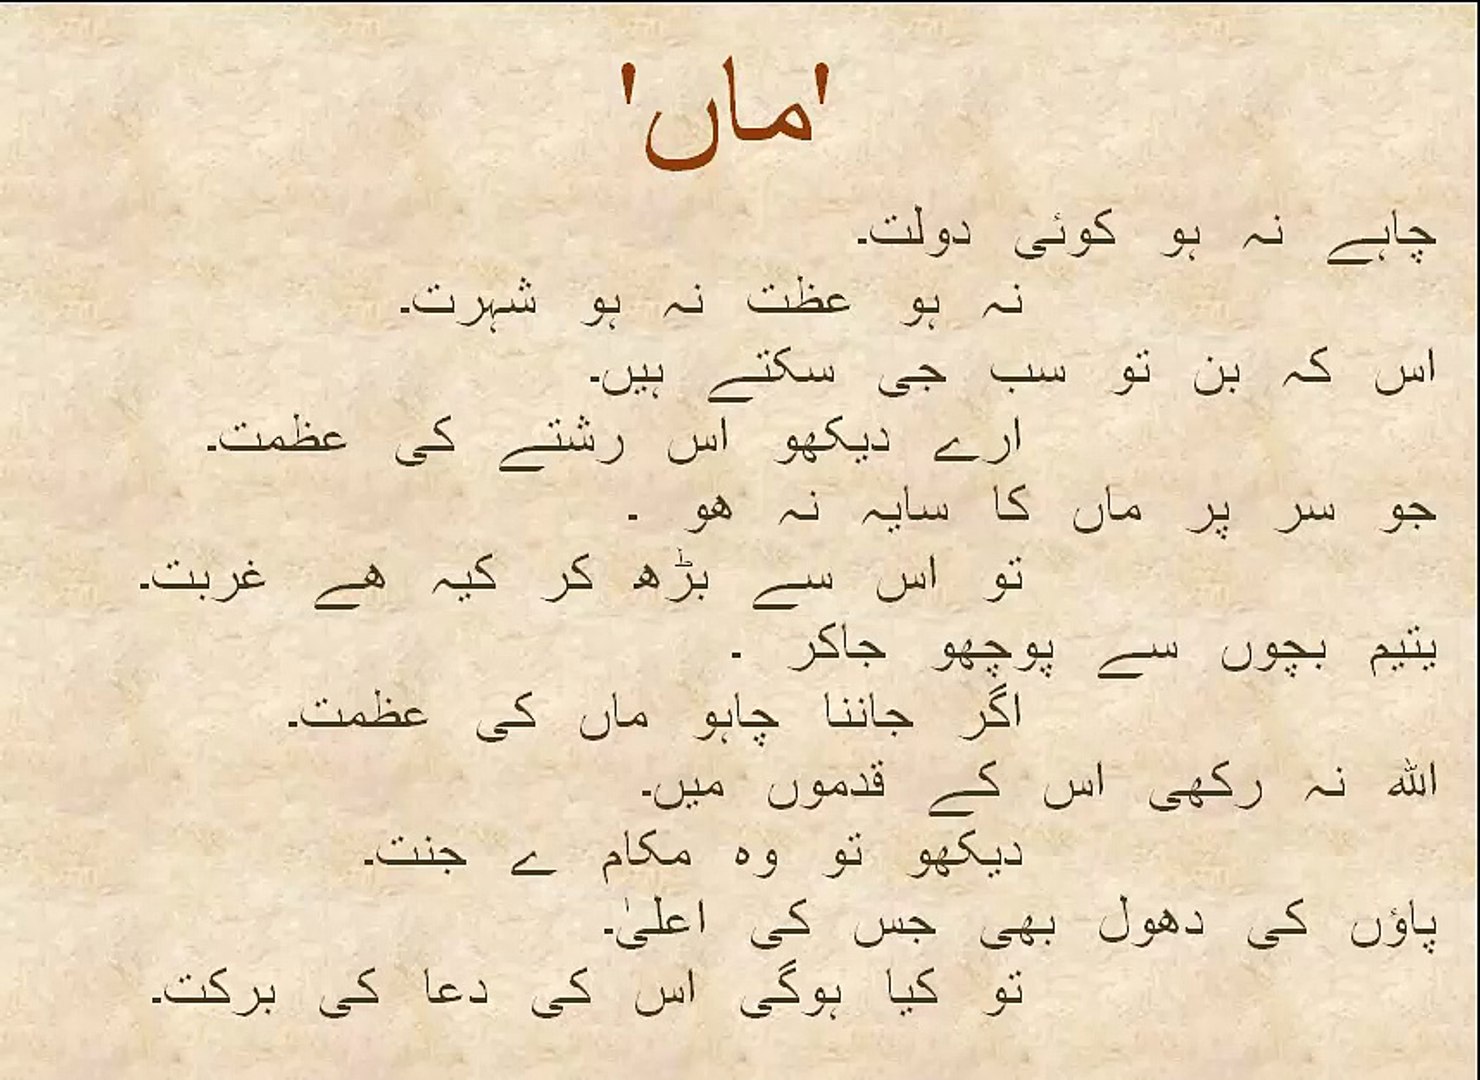 'ماں'
چاہے نہ ہو کوئی دولت۔
نہ ہو عظت نہ ہو شہرت۔
اس کہ بن تو سب جی سکتے ہیں۔
ارے دیکھو اس رشتے کی عظمت۔
جو سر پر ماں کا سایہ نہ ھو ۔
تو اس سے بڑھ کر کیہ ھے غربت۔
یتیم بچوں سے پوچھو جاکر ۔
اگر جاننا چاہو ماں کی عظمت۔
اللہ نہ رکھی اس کے قدموں میں۔
دیکھو تو وہ مکام ے جنت۔
پاؤں کی دھول بھی جس کی اعلیٰ۔
تو کیا ہوگی اس کی دعا کی برکت۔